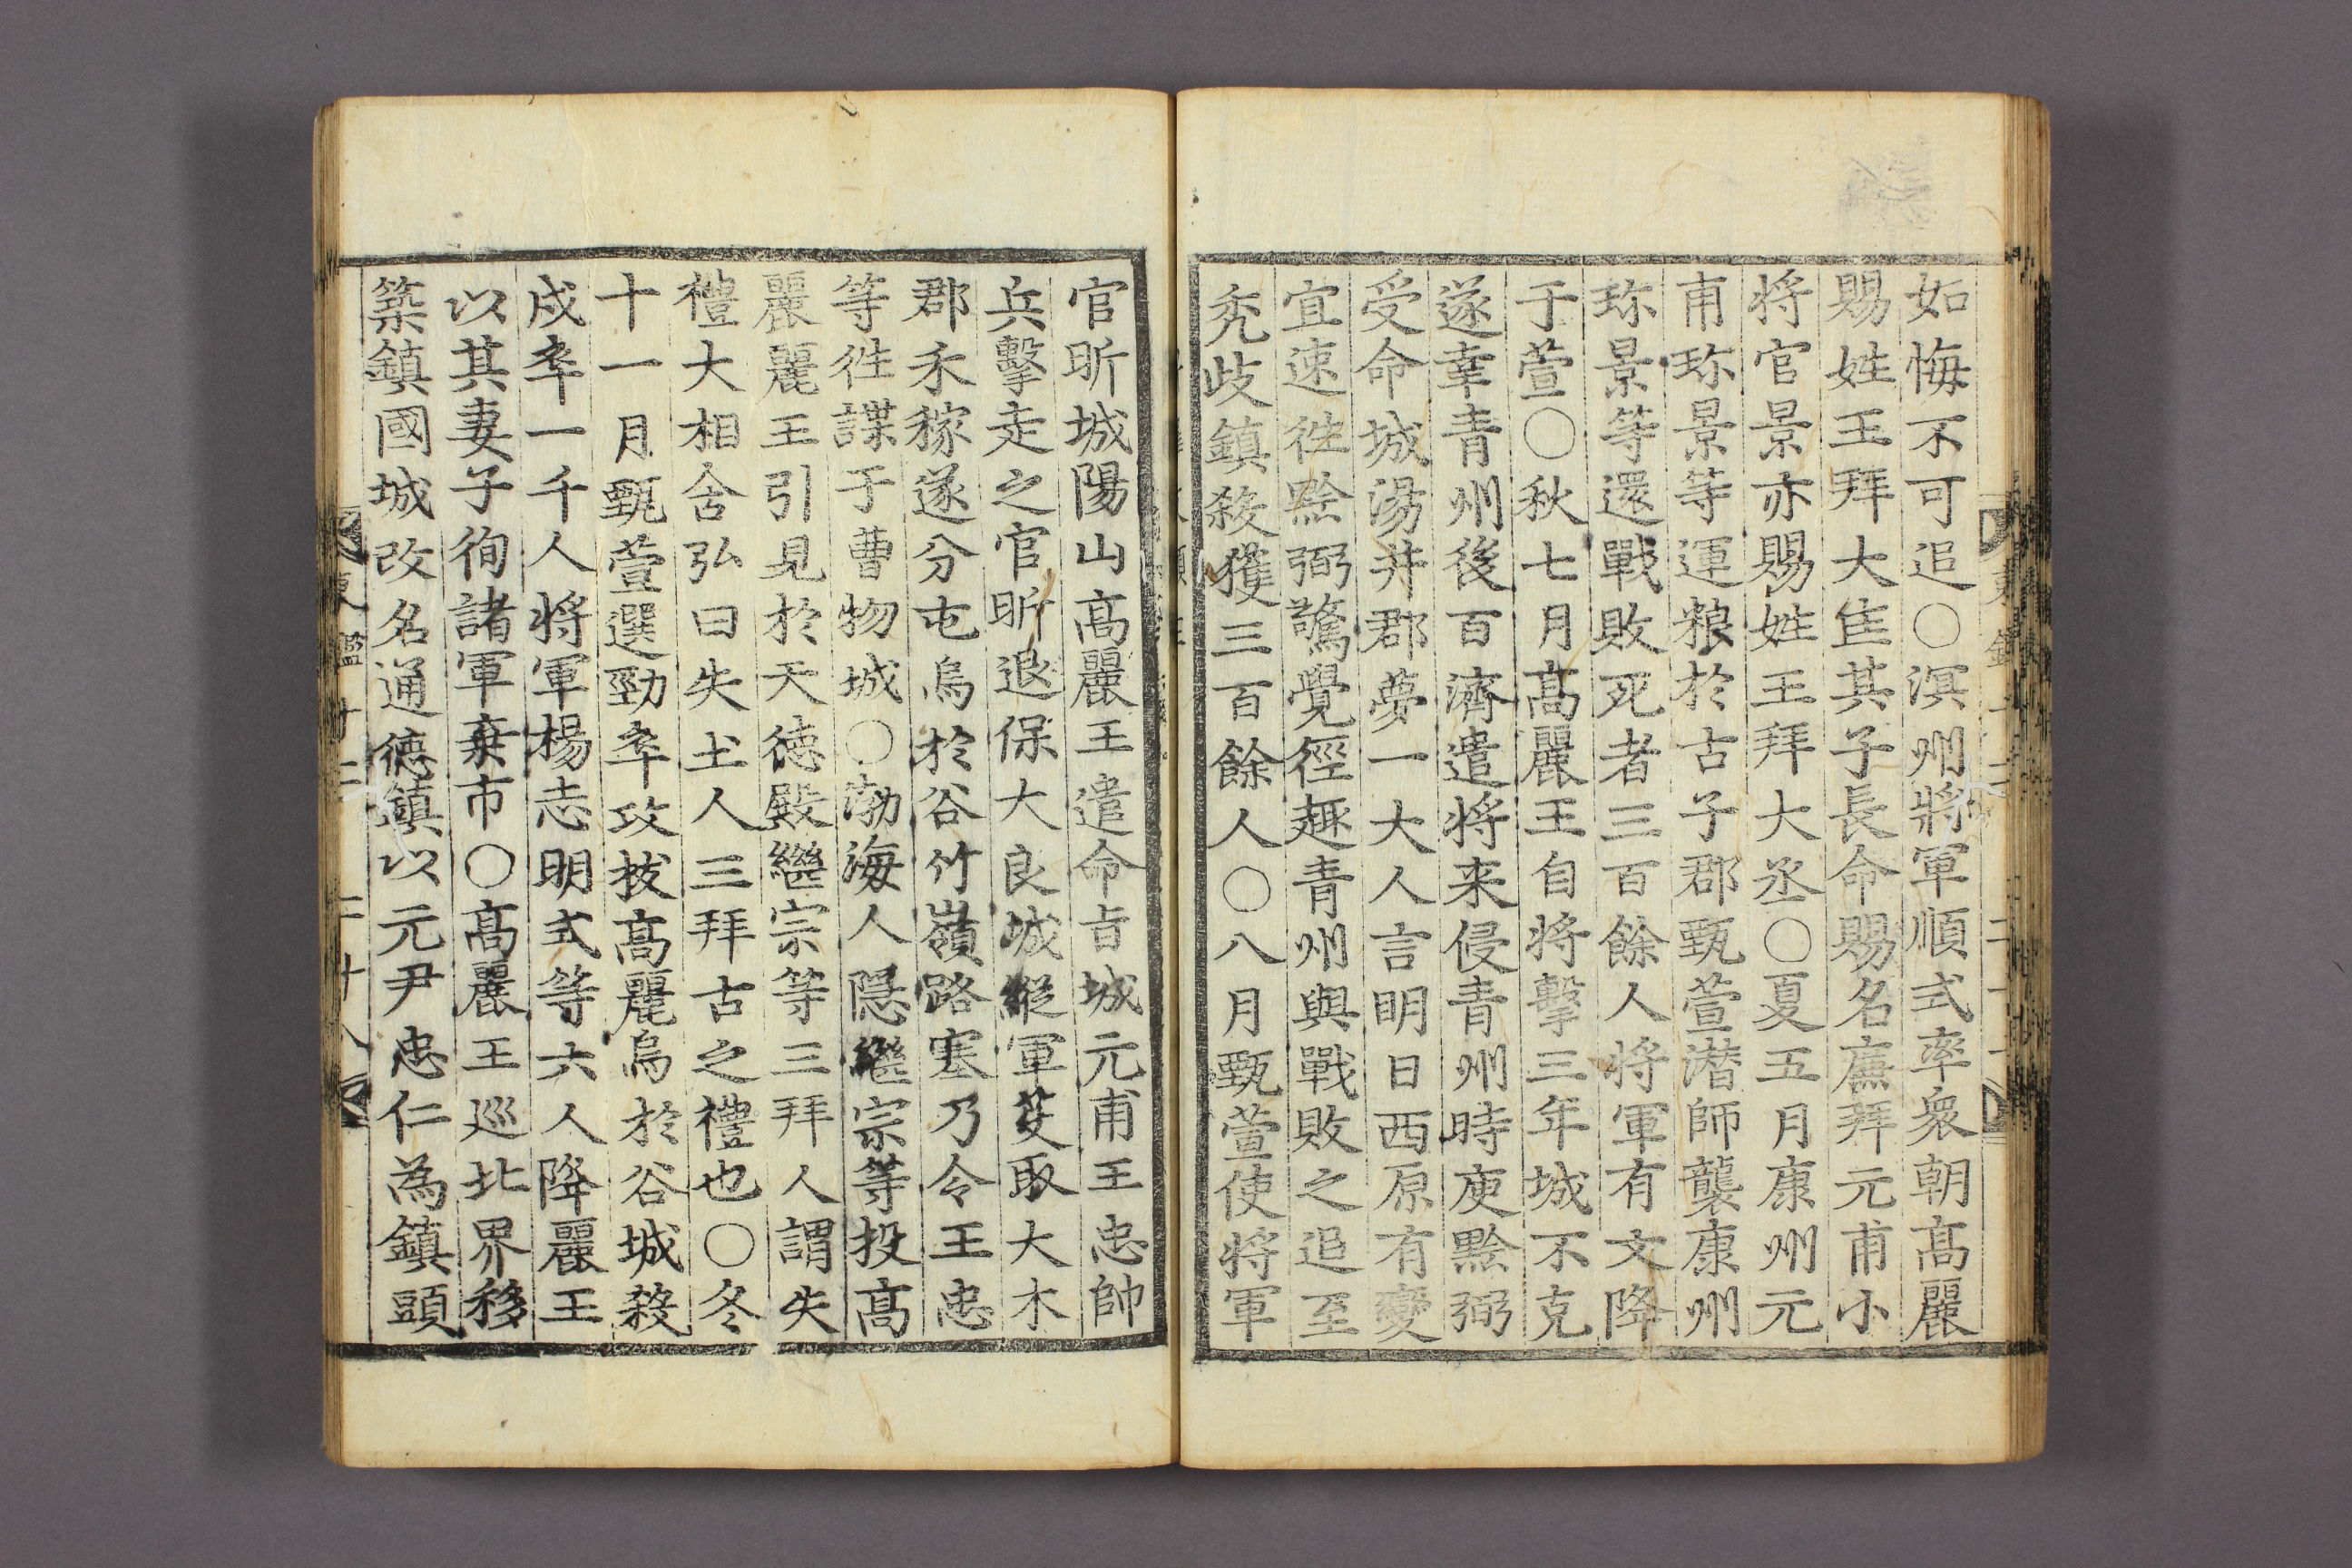 如悔不可追○溟州將軍順式率衆朝髙麗
賜姓王拜大匡其子長命賜名廉拜元甫小
将官景亦賜姓王拜大丞○夏五月康州元
甫珎景等運粮於古子郡甄萱潜師襲康州
珎景等還戰敗死者三百餘人将軍有文降
于萱○秋七月髙麗王自将擊三年城不克
遂幸青州後百濟遣将来侵青州時庾黔弼
受命城湯井郡夢一大人言明日西原有變
宜速徃黔弼驚覺徑趣青州與戰敗之追至
禿歧鎮殺獲三百餘人○八月甄萱使将軍
官昕城陽山髙麗王遣命旨城元甫王忠帥
兵擊走之官昕退保大良城縱軍芟取大木
郡禾稼遂分屯烏於谷竹嶺路塞乃令王忠
等徃諜于曹物城○渤海人隠繼宗等投髙
麗麗王引見於天徳殿繼宗等三拜人謂失
禮大相含弘曰失土人三拜古之禮也○冬
十一月甄萱選勁卒攻拔髙麗烏於谷城殺
戍卒一千人将軍楊志明式等六人降麗王
以其妻子徇諸軍棄市○髙麗王巡北界移
築鎮國城改名通徳鎮以元尹忠仁為鎮頭
東鑑十二 二十八